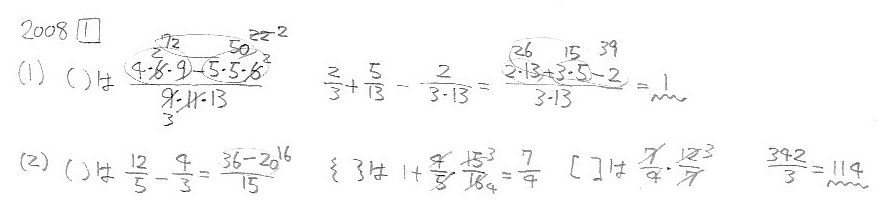 2008 1
(1) ( )は (4·6·9 - 5·5·6)/(9·11·13) 2 72 50 22 2 2 3 2/3 + 5/13 - 2/(3·13) = (2·13 + 3·5 - 2)/(3·13) 26 15 39 = 1
(2) ( )は 12/5 - 4/3 = (36-20)/15 16 { }は 1 + 4/5 · 15/16 3 4 = 7/4 [ ]は 7/4 · 12/7 3 342/3 = 114